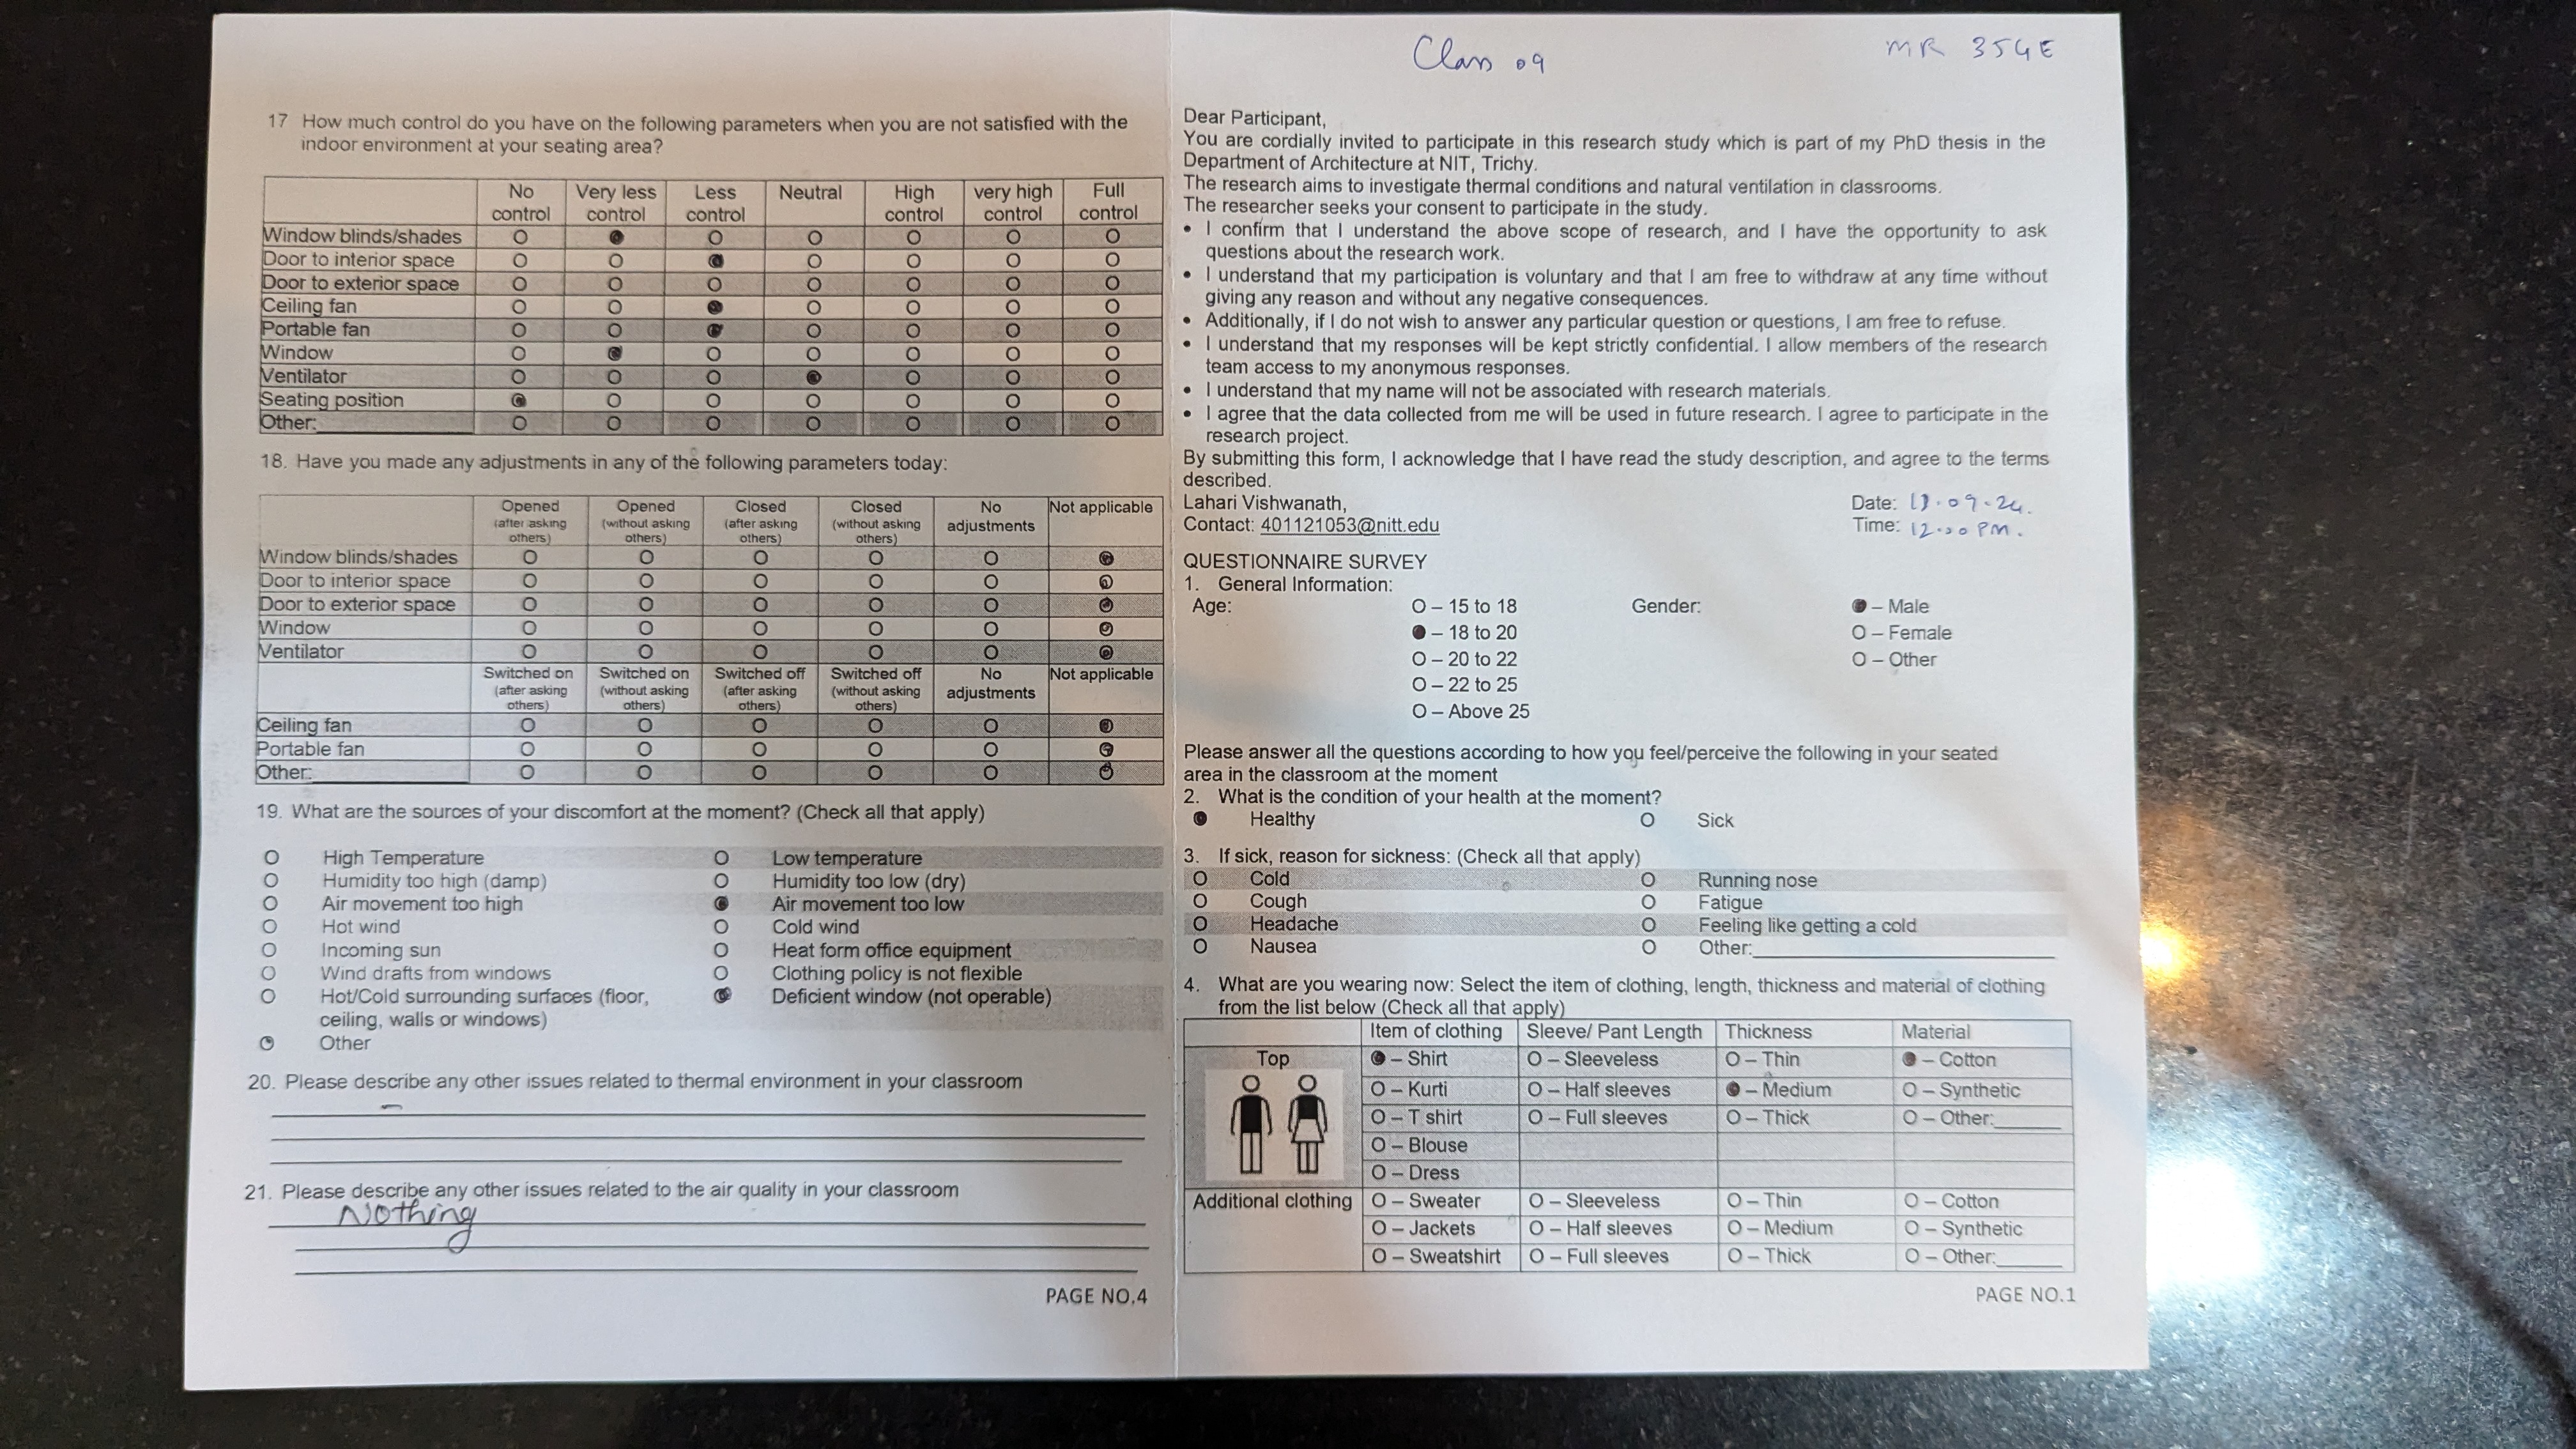 17 How much control do you have on the following parameters when you are not satisfied with the
indoor environment at your seating area?
No control Very less control Less control Neutral High control very high control Full control
Window blinds/shades O ● O O O O O
Door to interior space O O ● O O O O
Door to exterior space O O O O O O O
Ceiling fan O O ● O O O O
Portable fan O O ● O O O O
Window O ● O O O O O
Ventilator O O O ● O O O
Seating position ● O O O O O O
Other:_______ O O O O O O O
18. Have you made any adjustments in any of the following parameters today:
Opened (after asking others) Opened (without asking others) Closed (after asking others) Closed (without asking others) No adjustments Not applicable
Window blinds/shades O O O O O ●
Door to interior space O O O O O ●
Door to exterior space O O O O O ●
Window O O O O O ●
Ventilator O O O O O ●
Switched on (after asking others) Switched on (without asking others) Switched off (after asking others) Switched off (without asking others) No adjustments Not applicable
Ceiling fan O O O O O ●
Portable fan O O O O O ●
Other:_______ O O O O O ●
19. What are the sources of your discomfort at the moment? (Check all that apply)
O High Temperature O Low temperature
O Humidity too high (damp) O Humidity too low (dry)
O Air movement too high ● Air movement too low
O Hot wind O Cold wind
O Incoming sun O Heat form office equipment
O Wind drafts from windows O Clothing policy is not flexible
O Hot/Cold surrounding surfaces (floor, ● Deficient window (not operable)
ceiling, walls or windows)
O Other
20. Please describe any other issues related to thermal environment in your classroom
21. Please describe any other issues related to the air quality in your classroom
Nothing
PAGE NO.4
Class 09 MR 354E
Dear Participant,
You are cordially invited to participate in this research study which is part of my PhD thesis in the
Department of Architecture at NIT, Trichy.
The research aims to investigate thermal conditions and natural ventilation in classrooms.
The researcher seeks your consent to participate in the study.
• I confirm that I understand the above scope of research, and I have the opportunity to ask
questions about the research work.
• I understand that my participation is voluntary and that I am free to withdraw at any time without
giving any reason and without any negative consequences.
• Additionally, if I do not wish to answer any particular question or questions, I am free to refuse.
• I understand that my responses will be kept strictly confidential. I allow members of the research
team access to my anonymous responses.
• I understand that my name will not be associated with research materials.
• I agree that the data collected from me will be used in future research. I agree to participate in the
research project.
By submitting this form, I acknowledge that I have read the study description, and agree to the terms
described.
Lahari Vishwanath, Date: 13.09.24.
Contact: 401121053@nitt.edu Time: 12.00 PM.
QUESTIONNAIRE SURVEY
1. General Information:
Age: O – 15 to 18 Gender: ● – Male
● – 18 to 20 O – Female
O – 20 to 22 O – Other
O – 22 to 25
O – Above 25
Please answer all the questions according to how you feel/perceive the following in your seated
area in the classroom at the moment
2. What is the condition of your health at the moment?
● Healthy O Sick
3. If sick, reason for sickness: (Check all that apply)
O Cold O Running nose
O Cough O Fatigue
O Headache O Feeling like getting a cold
O Nausea O Other:_______
4. What are you wearing now: Select the item of clothing, length, thickness and material of clothing
from the list below (Check all that apply)
Item of clothing Sleeve/ Pant Length Thickness Material
Top ● – Shirt O – Sleeveless O – Thin ● – Cotton
O – Kurti O – Half sleeves ● – Medium O – Synthetic
O – T shirt O – Full sleeves O – Thick O – Other:_______
O – Blouse
O – Dress
Additional clothing O – Sweater O – Sleeveless O – Thin O – Cotton
O – Jackets O – Half sleeves O – Medium O – Synthetic
O – Sweatshirt O – Full sleeves O – Thick O – Other:_______
PAGE NO.1